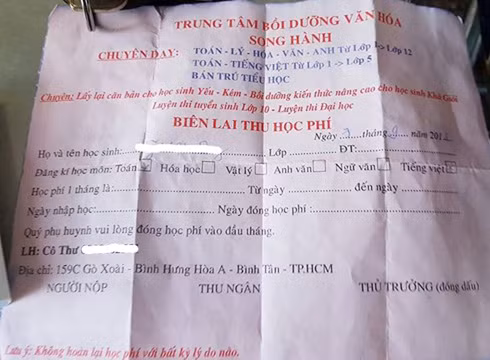 TRUNG TÂM BỒI DƯỠNG VĂN HÓA
SONG HÀNH
CHUYÊN DẠY: TOÁN - LÝ - HÓA - VĂN - ANH Từ Lớp 1 -> Lớp 12
TOÁN - TIẾNG VIỆT Từ Lớp 1 -> Lớp 5
BÁN TRÚ TIỂU HỌC
Chuyên: Lấy lại căn bản cho học sinh Yếu - Kém - Bồi dưỡng kiến thức nâng cao cho học sinh Khá Giỏi
Luyện thi tuyển sinh Lớp 10 - Luyện thi Đại học
BIÊN LAI THU HỌC PHÍ
Ngày 3 tháng năm 201
Họ và tên học sinh: Lớp ĐT:
Đăng kí học môn: Toán Hóa học Vật lý Anh văn Ngữ văn Tiếng việt
Học phí 1 tháng là: Từ ngày đến ngày
Ngày nhập học: Ngày đóng học phí :
Quý phụ huynh vui lòng đóng học phí vào đầu tháng.
LH: Cô Thư
Địa chỉ: 159C Gò Xoài - Bình Hưng Hòa A - Bình Tân - TP.HCM
NGƯỜI NỘP THU NGÂN THỦ TRƯỞNG (đóng dấu)
Lưu ý: Không hoàn lại học phí với bất kỳ lý do nào.